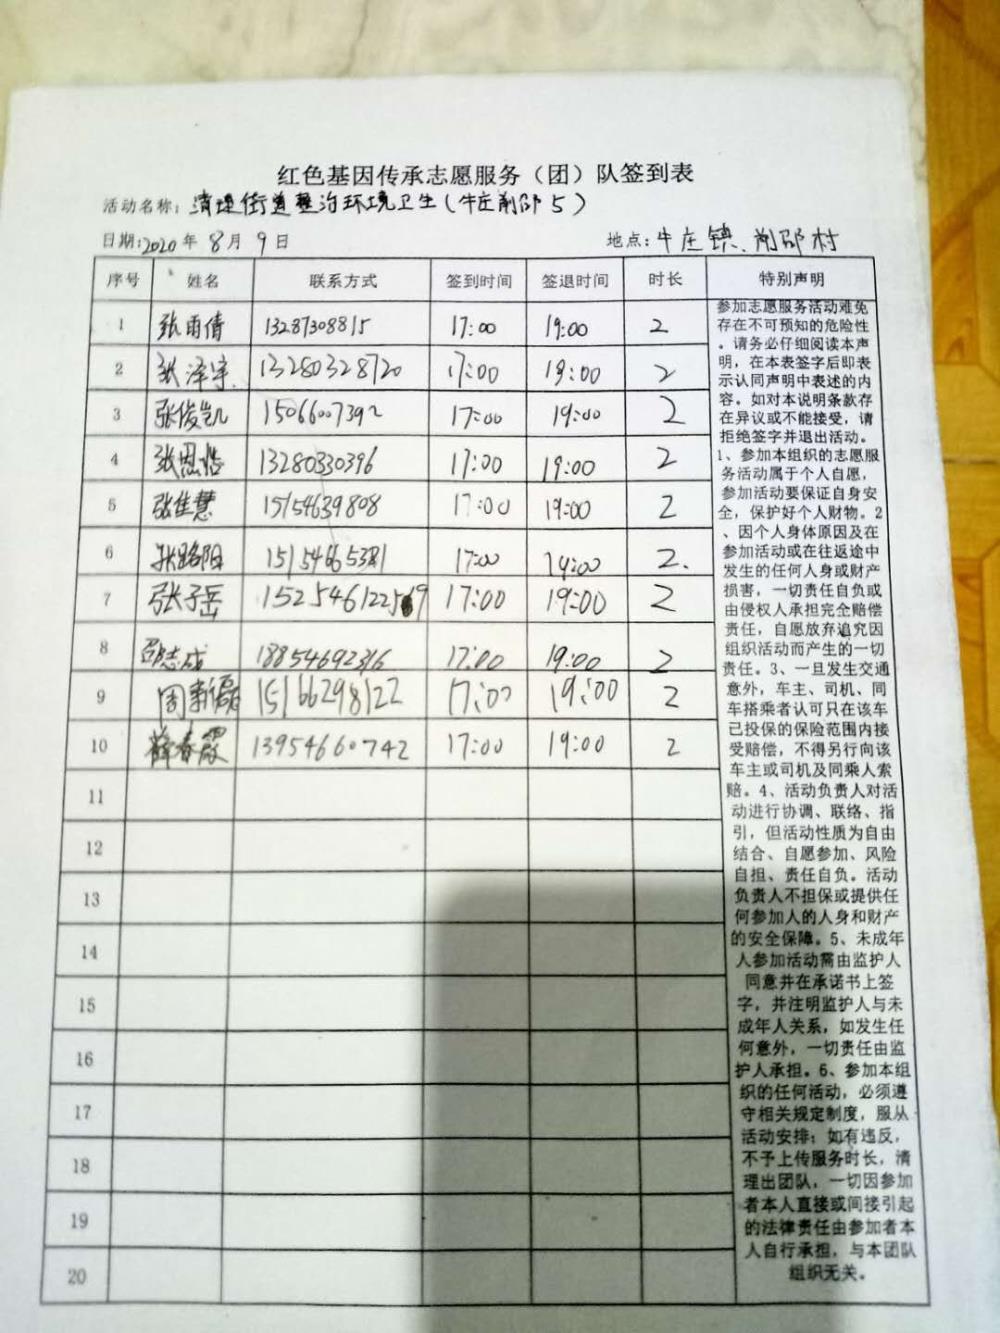 红色基因传承志愿服务（团）队签到表
活动名称：清理街道整治环境卫生（牛庄前邵5）
日期:2020年 8月 9日 地点：牛庄镇前邵村
序号 姓名 联系方式 签到时间 签退时间 时长 特别声明
1 张雨倩 13287308815 17:00 19:00 2
2 张泽宇 13280328720 17:00 19:00 2
3 张俊凯 15066007392 17:00 19:00 2
4 张恩浩 13280330396 17:00 19:00 2
5 张佳慧 15154639808 17:00 19:00 2
6 张路阳 15154665381 17:00 19:00 2.
7 张子岳 17:00 19:00 2
8 邵志成 18854692316 17:00 19:00 2
9 周新磊 15166298122 17:00 19:00 2
10 薛春霞 13954660742 17:00 19:00 2
11
12
13
14
15
16
17
18
19
20
参加志愿服务活动难免
存在不可预知的危险性
。请务必仔细阅读本声
明，在本表签字后即表
示认同声明中表述的内
容。如对本说明条款存
在异议或不能接受，请
拒绝签字并退出活动。
1、参加本组织的志愿服
务活动属于个人自愿，
参加活动要保证自身安
全，保护好个人财物。2
、因个人身体原因及在
参加活动或在往返途中
发生的任何人身或财产
损害，一切责任自负或
由侵权人承担完全赔偿
责任，自愿放弃追究因
组织活动而产生的一切
责任。3、一旦发生交通
意外，车主、司机、同
车搭乘者认可只在该车
已投保的保险范围内接
受赔偿，不得另行向该
车主或司机及同乘人索
赔。4、活动负责人对活
动进行协调、联络、指
引，但活动性质为自由
结合、自愿参加、风险
自担、责任自负。活动
负责人不担保或提供任
何参加人的人身和财产
的安全保障。5、未成年
人参加活动需由监护人
同意并在承诺书上签
字，并注明监护人与未
成年人关系，如发生任
何意外，一切责任由监
护人承担。6、参加本组
织的任何活动，必须遵
守相关规定制度，服从
活动安排；如有违反，
不予上传服务时长，清
理出团队，一切因参加
者本人直接或间接引起
的法律责任由参加者本
人自行承担，与本团队
组织无关。